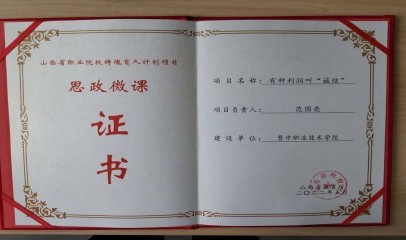 山西省职业院校铸魂育人计划项目
思政微课
证
书
项目名称：有种利润叫“诚信”
项目负责人：范国亮
建设单位：晋中职业技术学院
山西省教育
二〇二二年